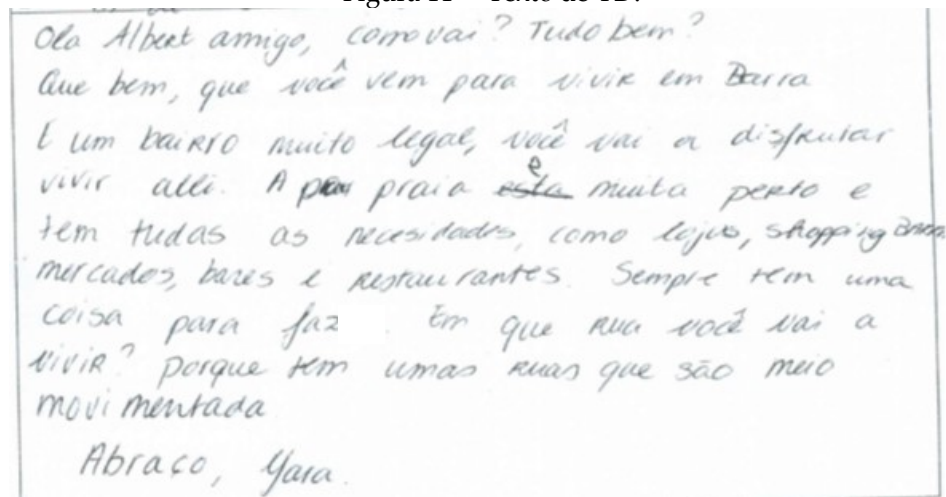 Ola Albert amigo, como vai? Tudo bem?
Que bem, que você vem para vivir em Barra
É um bairro muito legal, você vai a disfrutar
vivir alli. A praia é muita perto e
tem tudas as necesidades, como lojas, shopping
mercados, bares e restaurantes. Sempre tem uma
coisa para faz. Em que rua você vai a
vivir? porque tem umas ruas que são meio
movimentada
Abraço, Yara.